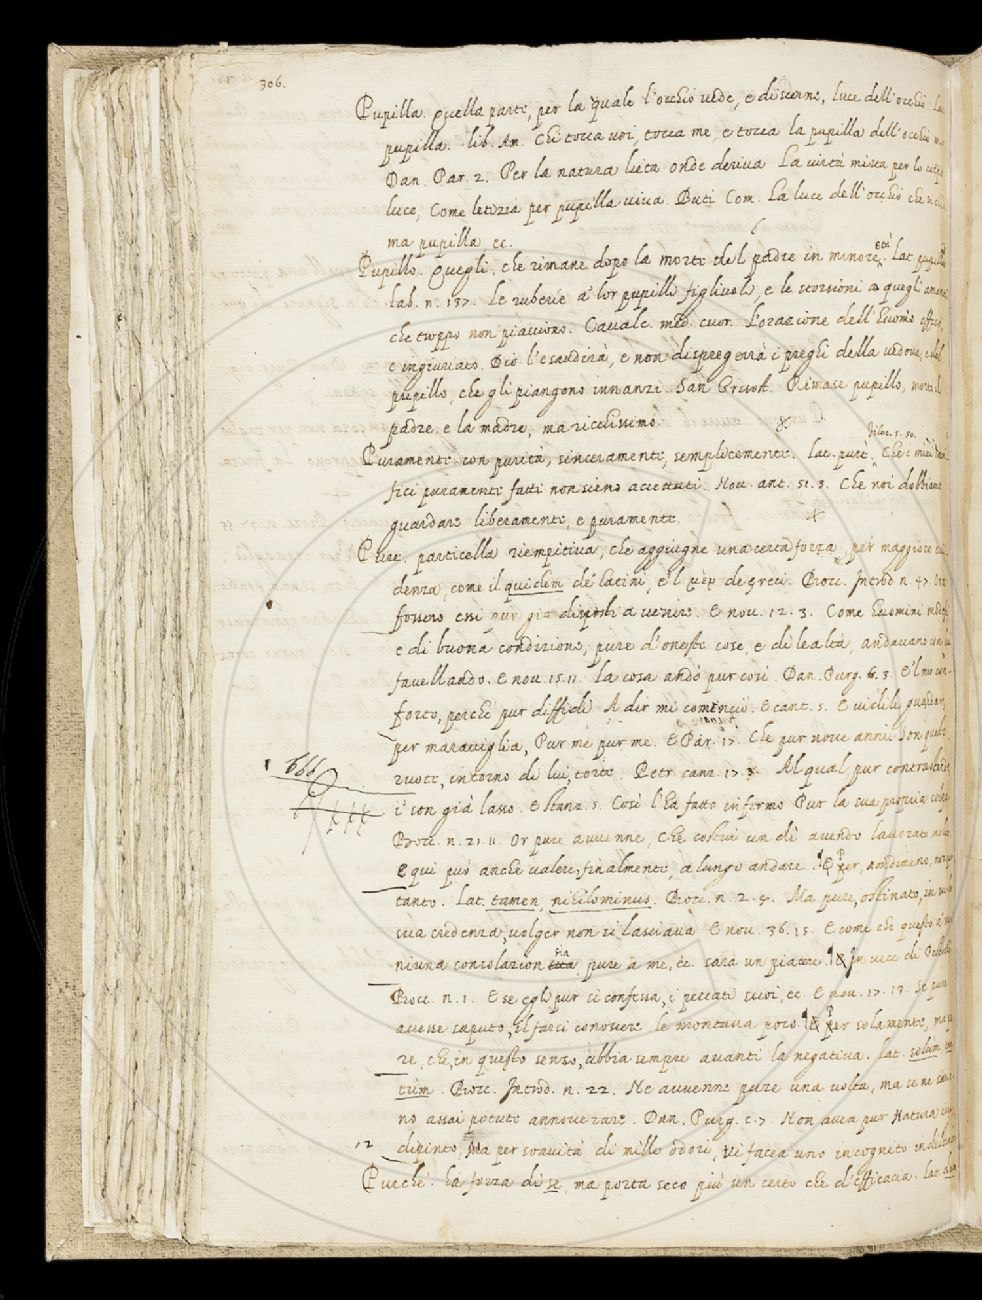 306.
Pupilla. Quella parte, per la quale l'occhio vede, e discerne, luce dell'occhio. Lat.
pupilla. lib. Am. Chi tocca voi, tocca me, e tocca la pupilla dell'occhio
Dan. Par. 2. Per la natura lieta onde deriva La virtù mista per lo corpo
luce, Come letizia per pupilla viva. Buti Com. La luce dell'occhio che si
ma pupilla, ec.
Pupillo. Quegli, che rimane dopo la morte del padre in minore età. Lat. pupillus
Lab. n. 137. Le ruberie a' lor pupilli figliuoli, e le storsioni a quegli
che troppo non piacciono. Cavalc. med. cuor. L'orazione dell'huomo afflitto,
e ingiuriato, Dio l'esaudirà, e non dispregerrà i preghi della vedova, e del
pupillo, che gli piangono innanzi. San Grisost. Rimase pupillo, morto il
padre, e la madre, ma ricchissimo.
Filoc. 5. 50.
Puramente. con purità, sinceramente, semplicemente. Lat. purè. Che i miei
fici puramente fatti non sieno accettati. Nov. ant. 51. 3. Che noi dobbiamo
guardare liberamente, e puramente.
Pure. particella riempitiva, che aggiugne una certa forza, per maggiore evi-
denza, come il quidem de' latini, e 'l μὲν de' greci. Bocc. Introd. n. 47. Ora
fossero essi pur già disposti a venire. E nov. 12. 3. Come huomini
e di buona condizione, pure d'oneste cose, e di lealtà, andavano con lui
favellando. E nov. 15. 11. La cosa andò pur così. Dan. Purg. E 'l mio con-
forto, perchè pur diffidi A dir mi cominciò. E cant. 5. E vidile guardar,
per maraviglia, Pur me pur me. E Par. 17. Che pur nove anni son queste
ruote, intorno di lui, torte. Petr. canz. 17. 3. Al qual pur contrastando
i' son già lasso. E stanz. 5. Così l'ha fatto infermo Pur la sua propria colpa
Bocc. n. 21. 11. Or pure avvenne, che costui un dì avendo lavorato molto
E qui può anche valere, finalmente, a lungo andare. Per, nondimeno, non per
tanto. Lat. tamen, nihilominus. Bocc. n. 2. 4. Ma pure, ostinato, in su la
sua credenza, volger non si lasciava. E nov. 36. 15. E come che questo a
niuna consolazion sia, pure a me, ec. sarà un piacere. In vece di
Bocc. n. 1. E se egli pur si confessa, i peccati suoi, ec. E nov. 17. 13. Se pure
avesse saputo, il farsi conoscere le montava poco. Per solamente, ma
re, che, in questo senso, abbia sempre avanti la negativa. Lat. solum, tan
tum. Bocc. Introd. n. 22. Ne avvenne pure una volta, ma se ne
no assai potute annoverare. Dan. Purg. c. 7. Non avea pur Natura ivi
dipinto, Ma per soavità di mille odori, Vi facea uno incognito indistinto
Purche. ha forza di se, ma porta seco più un certo che d'efficacia. Lat.